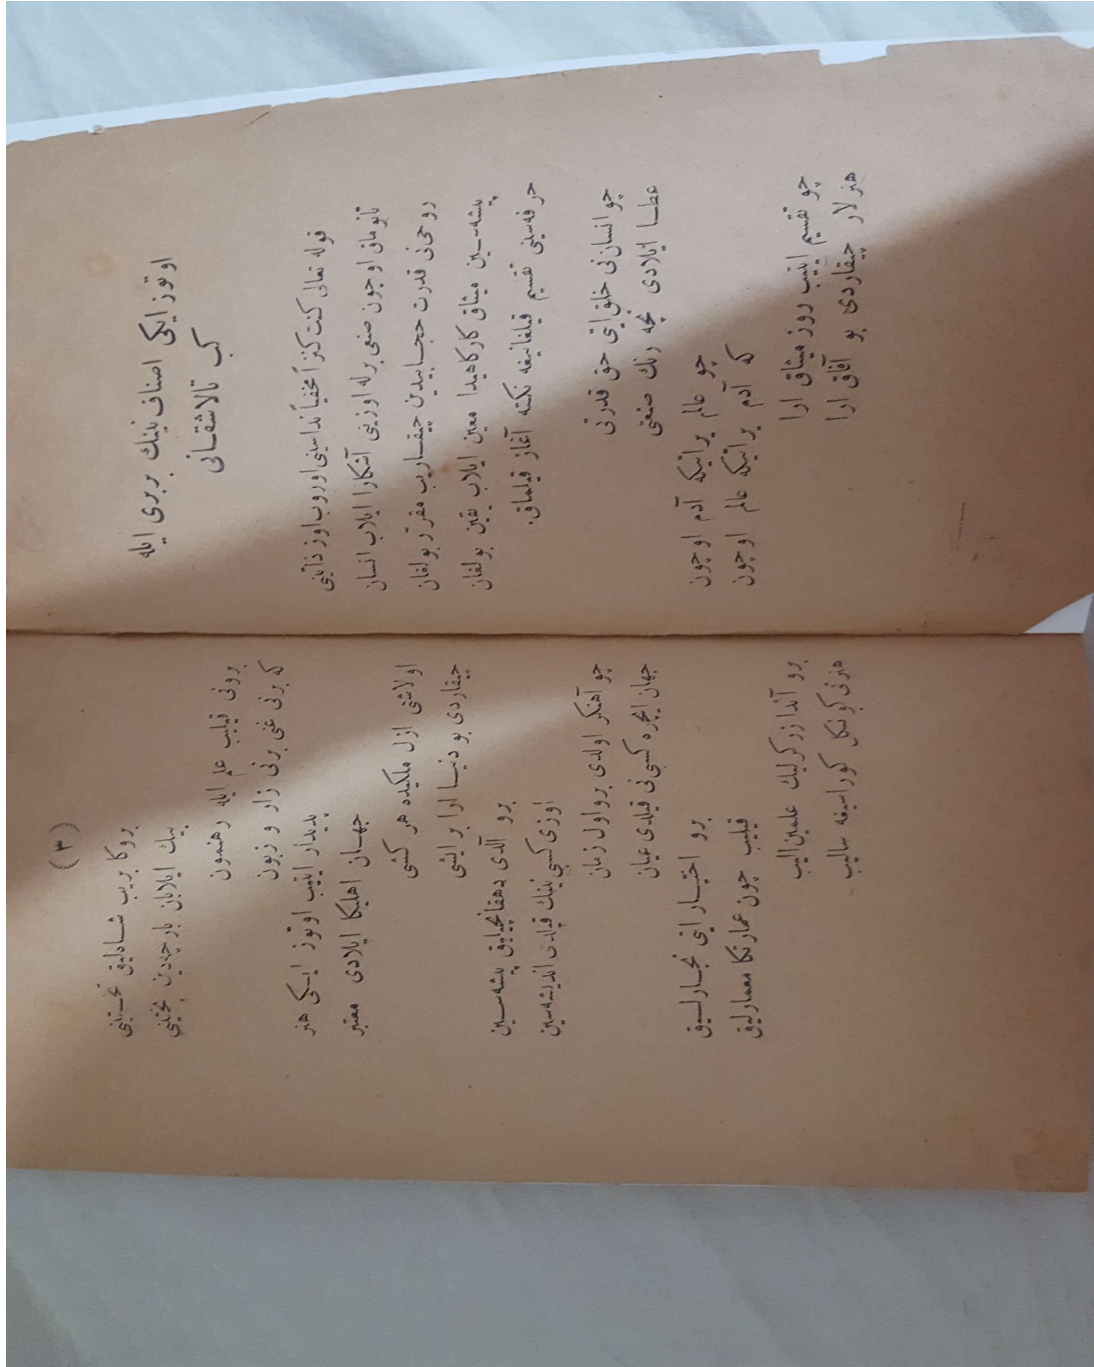 اوتوز ایکی اصناف نینك بربری ایله
كب تالاشقانی
قوله تعالی كنت كنزاً مخفیاً نداسینی اوروب اوز ذاتینی
تانوماق اوچون صنعی برله اوزینی آشكارا ایلاب انسان
روحی نی قدرت حجابیدین چیقاریب مقرر بولغان
پیشه سین میثاق كارگاهیدا معین ایلاب یقین بولغان
حرفه سینی تقسیم قیلغانیغه نكته آغاز قیلماق.
چو انسان نی خلق ایتی حق قدرتی
عطا ایلادی نچه رنك صنعتی
چو عالم یراتیكه آدم اوچون
كه آدم یراتیكه عالم اوچون
چو تقسیم ایتیب روز میثاق ارا
هنرلار چیقاردی بو آفاق ارا
(٣)
بروكا بریب شادلیق تختینی
بیك ایلابان بارچه دین بختینی
برونی قیلیب علم ایله رهنمون
كه برنی غنی برنی زار و زبون
پدیدار ایتیب اوتوز ایكی هنر
جهان اهلیكا ایلادی معتبر
اولاشتی ازل ملكیده هر كشی
چیقاردی بو دنیا ارا بر ایشی
برو آلدی دهقانچیلیق پیشه سین
اوزی كسبی نینك قیلدی اندیشه سین
چو آهنكر اولدی برو اول زمان
جهان ایچره كسبی نی قیلدی عیان
برو اختیار ایتی نجارلیق
قیلیب چون عمارتكا معمارلیق
برو آندا زركرلیك علمین الیب
هنرنی كونكل كوراسیغه سالیب